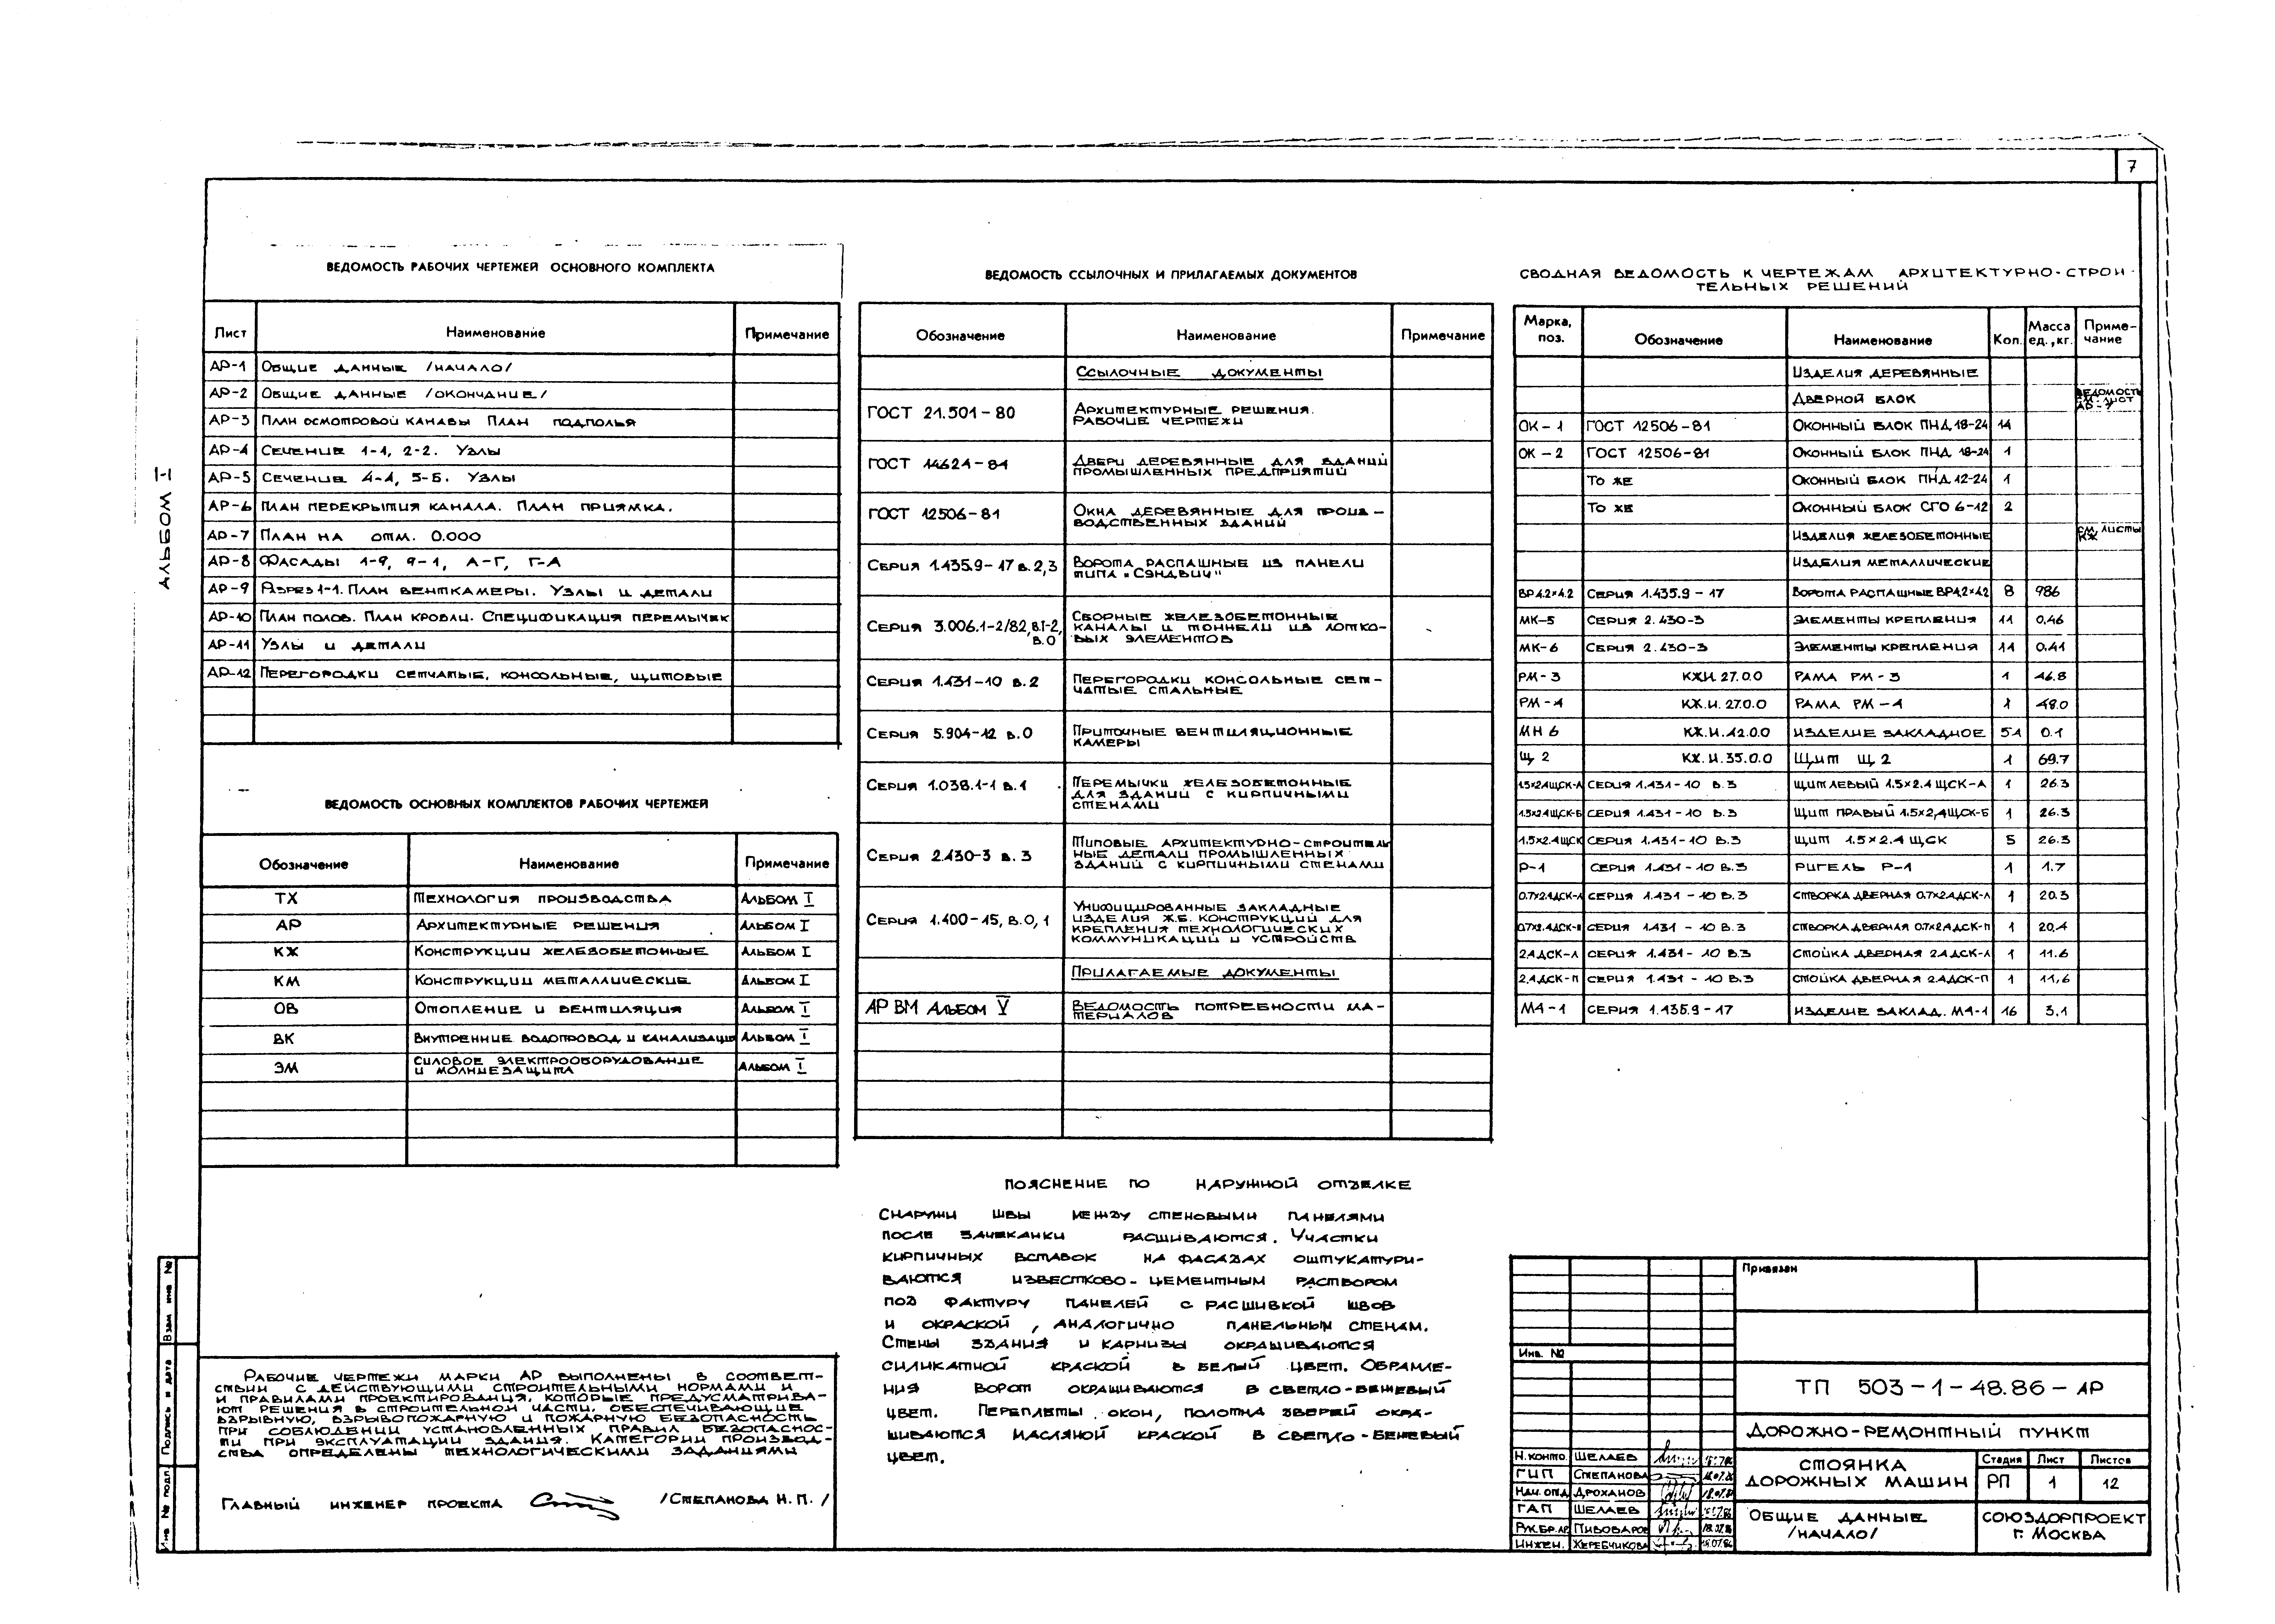 7
АЛЬБОМ I
ВЕДОМОСТЬ РАБОЧИХ ЧЕРТЕЖЕЙ ОСНОВНОГО КОМПЛЕКТА
Лист Наименование Примечание
АР-1 Общие данные /начало/
АР-2 Общие данные /окончание/
АР-3 План осмотровой канавы План подполья
АР-4 Сечение 1-1, 2-2. Узлы
АР-5 Сечение 4-4, 5-5. Узлы
АР-6 План перекрытия канала. План приямка.
АР-7 План на отм. 0.000
АР-8 Фасады 1-9, 9-1, А-Г, Г-А
АР-9 Разрез 1-1. План венткамеры. Узлы и детали
АР-10 План полов. План кровли. Спецификация перемычек
АР-11 Узлы и детали
АР-12 Перегородки сетчатые, консольные, щитовые
ВЕДОМОСТЬ ОСНОВНЫХ КОМПЛЕКТОВ РАБОЧИХ ЧЕРТЕЖЕЙ
Обозначение Наименование Примечание
ТХ Технология производства Альбом I
АР Архитектурные решения Альбом I
КЖ Конструкции железобетонные Альбом I
КМ Конструкции металлические Альбом I
ОВ Отопление и вентиляция Альбом I
ВК Внутренние водопровод и канализация Альбом I
ЭМ Силовое электрооборудование
и молниезащита Альбом I
Рабочие чертежи марки АР выполнены в соответ-
ствии с действующими строительными нормами и
и правилами проектирования, которые предусматрива-
ют решения в строительной части, обеспечивающие
взрывную, взрывопожарную и пожарную безопасность
при соблюдении установленных правил безопаснос-
ти при эксплуатации здания. Категории производ-
ства определены технологическими заданиями
Главный инженер проекта /Степанова Н.П./
ВЕДОМОСТЬ ССЫЛОЧНЫХ И ПРИЛАГАЕМЫХ ДОКУМЕНТОВ
Обозначение Наименование Примечание
Ссылочные документы
ГОСТ 21.501-80 Архитектурные решения.
Рабочие чертежи
ГОСТ 14624-84 Двери деревянные для зданий
промышленных предприятий
ГОСТ 12506-81 Окна деревянные для произ-
водственных зданий
Серия 1.435.9-17 в.2,3 Ворота распашные из панели
типа "Сэндвич"
Серия 3.006.1-2/82, в.I-2, Сборные железобетонные
в.0 каналы и тоннели из лотко-
вых элементов
Серия 1.431-10 в.2 Перегородки консольные сет-
чатые стальные
Серия 5.904-12 в.0 Приточные вентиляционные
камеры
Серия 1.038.1-1 в.1 Перемычки железобетонные
для зданий с кирпичными
стенами
Серия 2.430-3 в.3 Типовые архитектурно-строитель
ные детали промышленных
зданий с кирпичными стенами
Серия 1.400-15, в.0,1 Унифицированные закладные
изделия ж.б. конструкций для
крепления технологических
коммуникаций и устройств
Прилагаемые документы
АР ВМ Альбом V Ведомость потребности ма-
териалов
Пояснение по наружной отделке
Снаружи швы между стеновыми панелями
после зачеканки расшиваются. Участки
кирпичных вставок на фасадах оштукатури-
ваются известково-цементным раствором
под фактуру панелей с расшивкой швов
и окраской, аналогично панельным стенам.
Стены здания и карнизы окрашиваются
силикатной краской в белый цвет. Обрамле-
ния ворот окрашиваются в светло-бежевый
цвет. Переплеты окон, полотна дверей окра-
шиваются масляной краской в светло-бежевый
цвет.
СВОДНАЯ ВЕДОМОСТЬ К ЧЕРТЕЖАМ АРХИТЕКТУРНО-СТРОИ-
ТЕЛЬНЫХ РЕШЕНИЙ
Марка, поз. Обозначение Наименование Кол. Масса ед., кг. Приме-чание
Изделия деревянные
Дверной блок Ведомость см. лист АР-7
ОК-1 ГОСТ 12506-81 Оконный блок ПНД 18-24 14
ОК-2 ГОСТ 12506-81 Оконный блок ПНД 18-24 1
То же Оконный блок ПНД 12-24 1
То же Оконный блок СГО 6-12 2
Изделия железобетонные см. листы КЖ
Изделия металлические
ВР4.2×4.2 Серия 1.435.9-17 Ворота распашные ВР4,2×4.2 8 986
МК-5 Серия 2.430-3 Элементы крепления 11 0,46
МК-6 Серия 2.430-3 Элементы крепления 11 0.41
РМ-3 КЖ.И.27.0.0 Рама РМ-3 1 46.8
РМ-4 КЖ.И.27.0.0 Рама РМ-4 1 48.0
МН 6 КЖ.И.12.0.0 Изделие закладное 51 0.1
Щ 2 КЖ.И.35.0.0 Щит Щ 2 1 69.7
1.5×2.4ЩСК-Л Серия 1.431-10 в.3 Щит левый 1.5×2.4 ЩСК-А 1 26.3
1.5×2.4ЩСК-Б Серия 1.431-10 в.3 Щит правый 1.5×2,4ЩСК-Б 1 26.3
1.5×2.4ЩСК Серия 1.431-10 в.3 Щит 1.5×2.4 ЩСК 5 26.3
Р-1 Серия 1.431-10 в.3 Ригель Р-1 1 1.7
0.7×2.4ДСК-Л Серия 1.431-10 в.3 Створка дверная 0.7×2.4ДСК-Л 1 20.3
0.7×2.4ДСК-П Серия 1.431-10 в.3 Створка дверная 0.7×2.4ДСК-П 1 20.4
2.4ДСК-Л Серия 1.431-10 в.3 Стойка дверная 2.4ДСК-Л 1 11.6
2.4ДСК-П Серия 1.431-10 в.3 Стойка дверная 2.4ДСК-П 1 11,6
М4-1 Серия 1.435.9-17 Изделие заклад. М4-1 16 3.1
Привязан
Инв. №
ТП 503-1-48.86-АР
Дорожно-ремонтный пункт
Н.контр. Шелаев
ГИП Степанова
Нач. отд. Дроханов
ГАП Шелаев
Рук.бр.ар. Пивоваров
Инжен. Жеребчикова
Стоянка
дорожных машин
Стадия Лист Листов
РП 1 12
Общие данные
/начало/
СОЮЗДОРПРОЕКТ
г. Москва
Взам. инв №
Подпись и дата
Инв № подл.